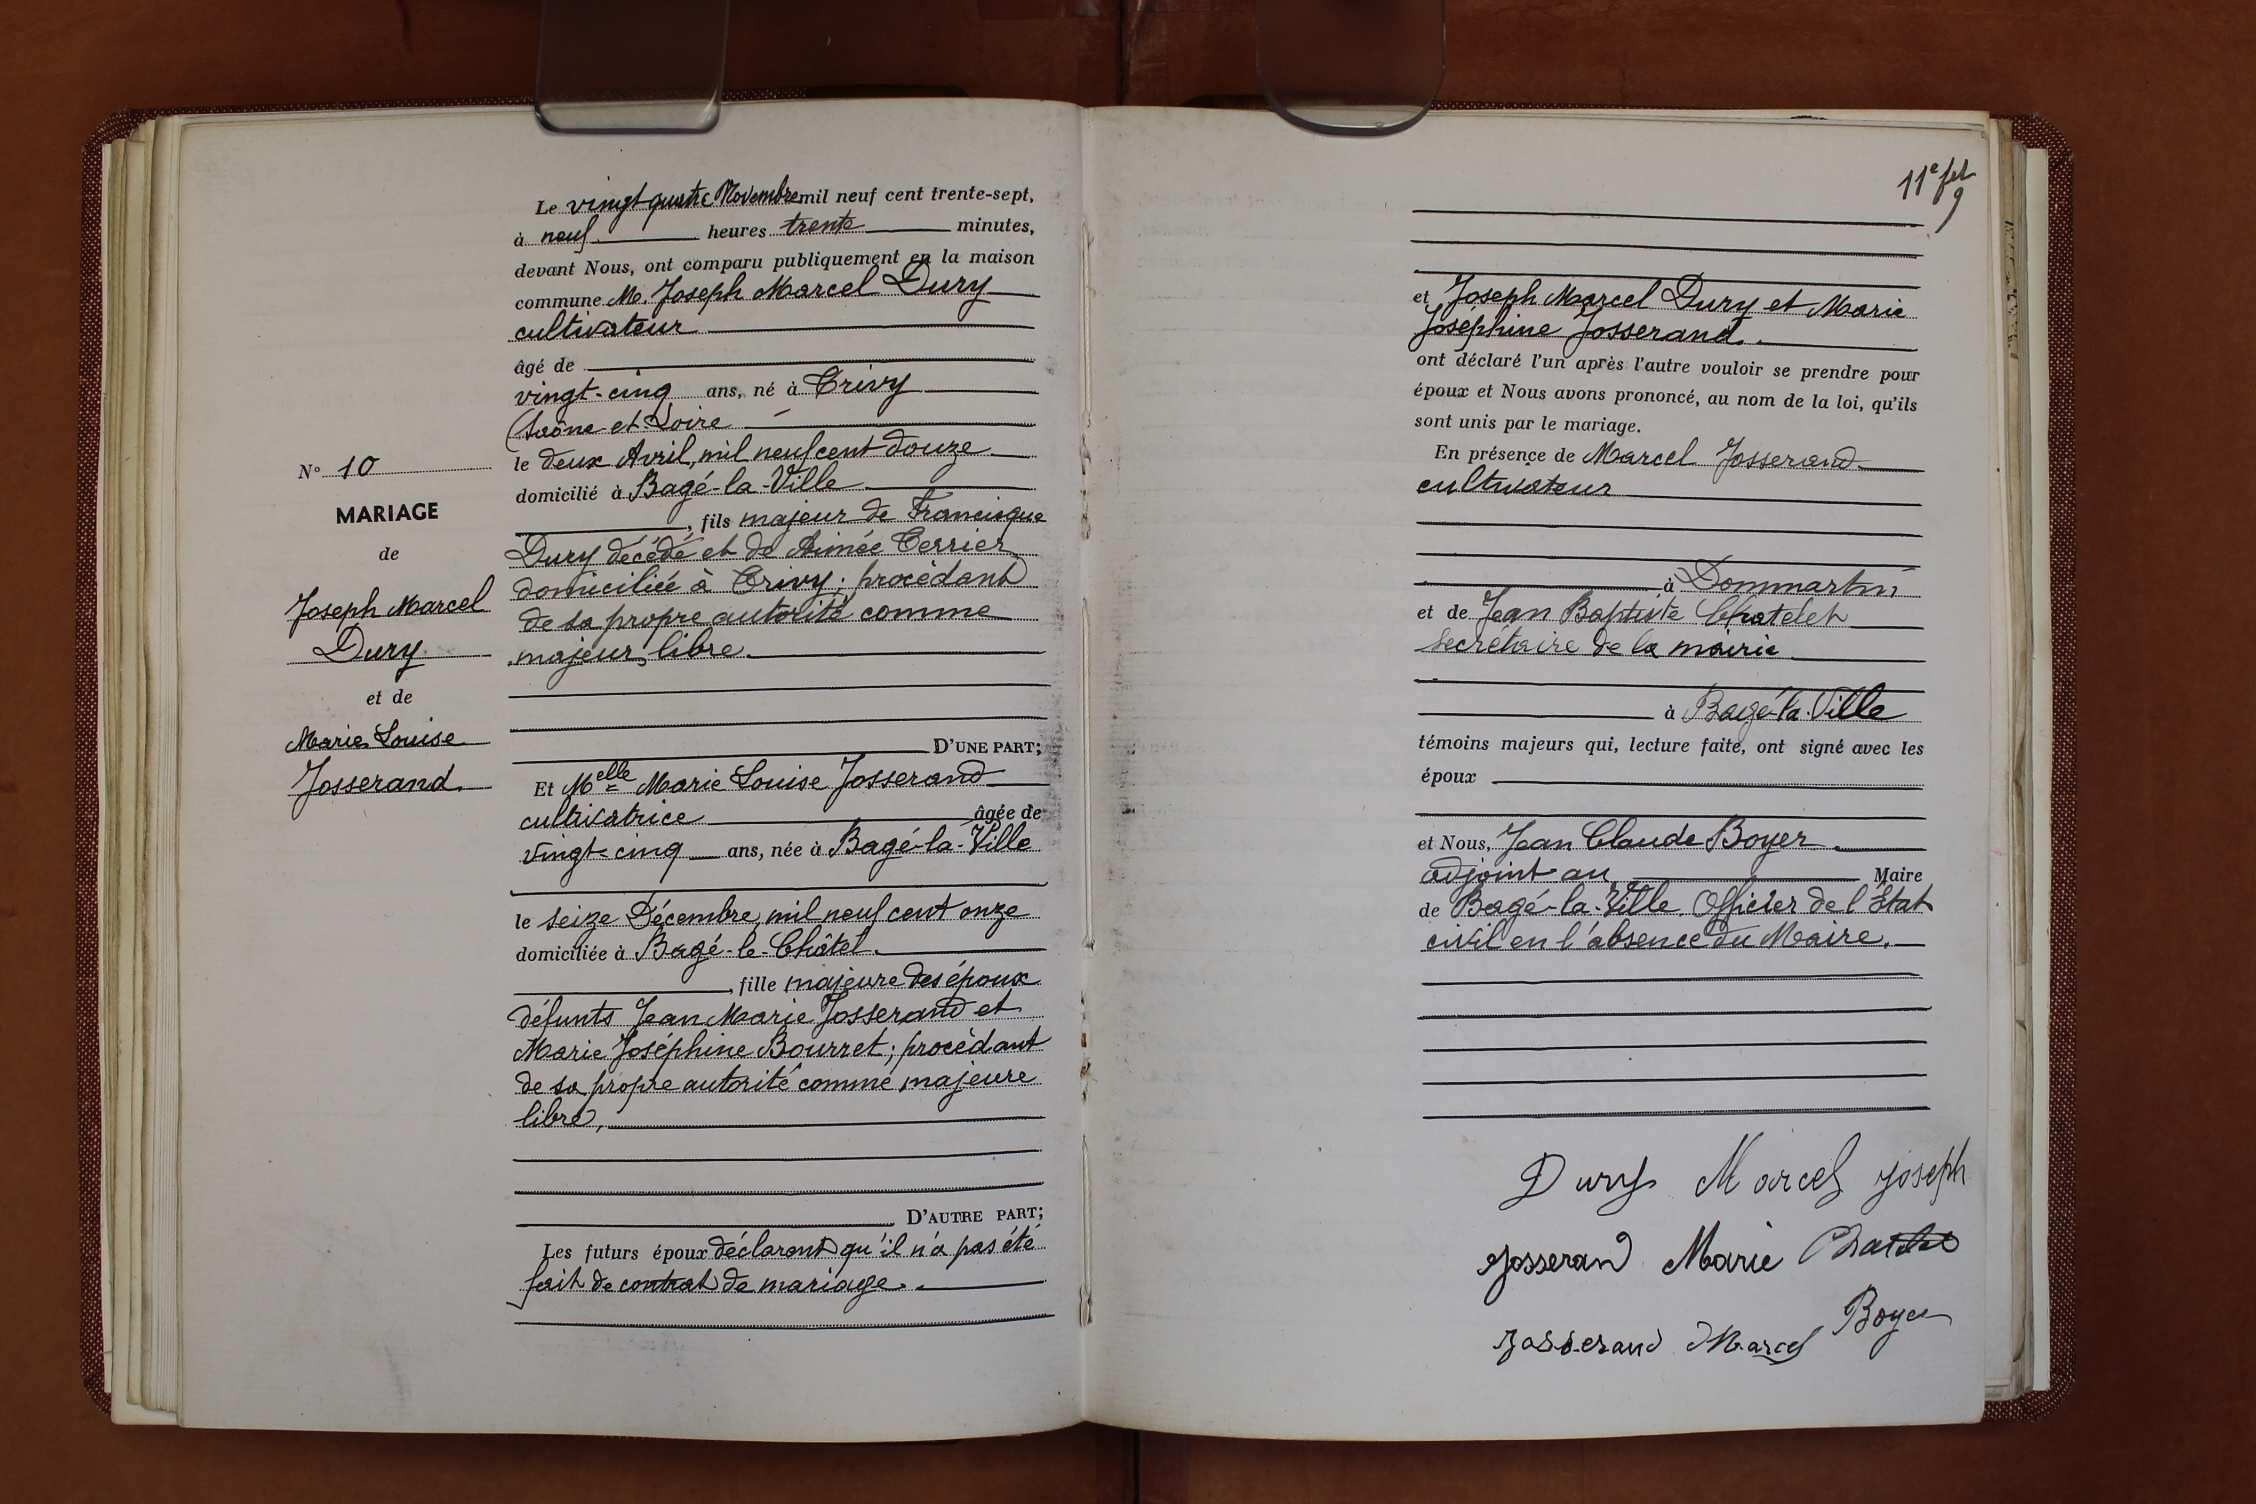 N° 10
MARIAGE
de
Joseph Marcel
Dury
et de
Marie Louise
Josserand
Le vingt-quatre Novembre mil neuf cent trente-sept,
à neuf heures trente minutes,
devant Nous, ont comparu publiquement en la maison
commune M. Joseph Marcel Dury
cultivateur
âgé de
vingt-cinq ans, né à Trivy
(Saône-et-Loire
le deux Avril, mil neuf cent douze
domicilié à Bagé-la-Ville
, fils majeur de Francisque
Dury décédé et de Aimée Terrier
domiciliée à Trivy; procédant
de sa propre autorité comme
majeur, libre
D'UNE PART;
Et Melle Marie Louise Josserand
cultivatrice âgée de
vingt-cinq ans, née à Bagé-la-Ville
le seize Décembre, mil neuf cent onze
domiciliée à Bagé-le-Châtel.
, fille majeure des époux
défunts Jean Marie Josserand et
Marie Joséphine Bourret; procédant
de sa propre autorité comme majeure
libre,
D'AUTRE PART;
Les futurs époux déclarent qu'il n'a pas été
fait de contrat de mariage.
11e f
9
et Joseph Marcel Dury et Marie
Joséphine Josserand.
ont déclaré l'un après l'autre vouloir se prendre pour
époux et Nous avons prononcé, au nom de la loi, qu'ils
sont unis par le mariage.
En présence de Marcel Josserand
cultivateur
à Dommartin
et de Jean Baptiste Chatelet
secrétaire de la mairie
à Bagé-la-Ville
témoins majeurs qui, lecture faite, ont signé avec les
époux
et Nous, Jean Claude Boyer
adjoint au Maire
de Bagé-la-Ville Officier de l'État
civil en l'absence du Maire.
Dury Marcel Joseph
Josserand Marie Chatelet
Boyer
Josserand Marcel